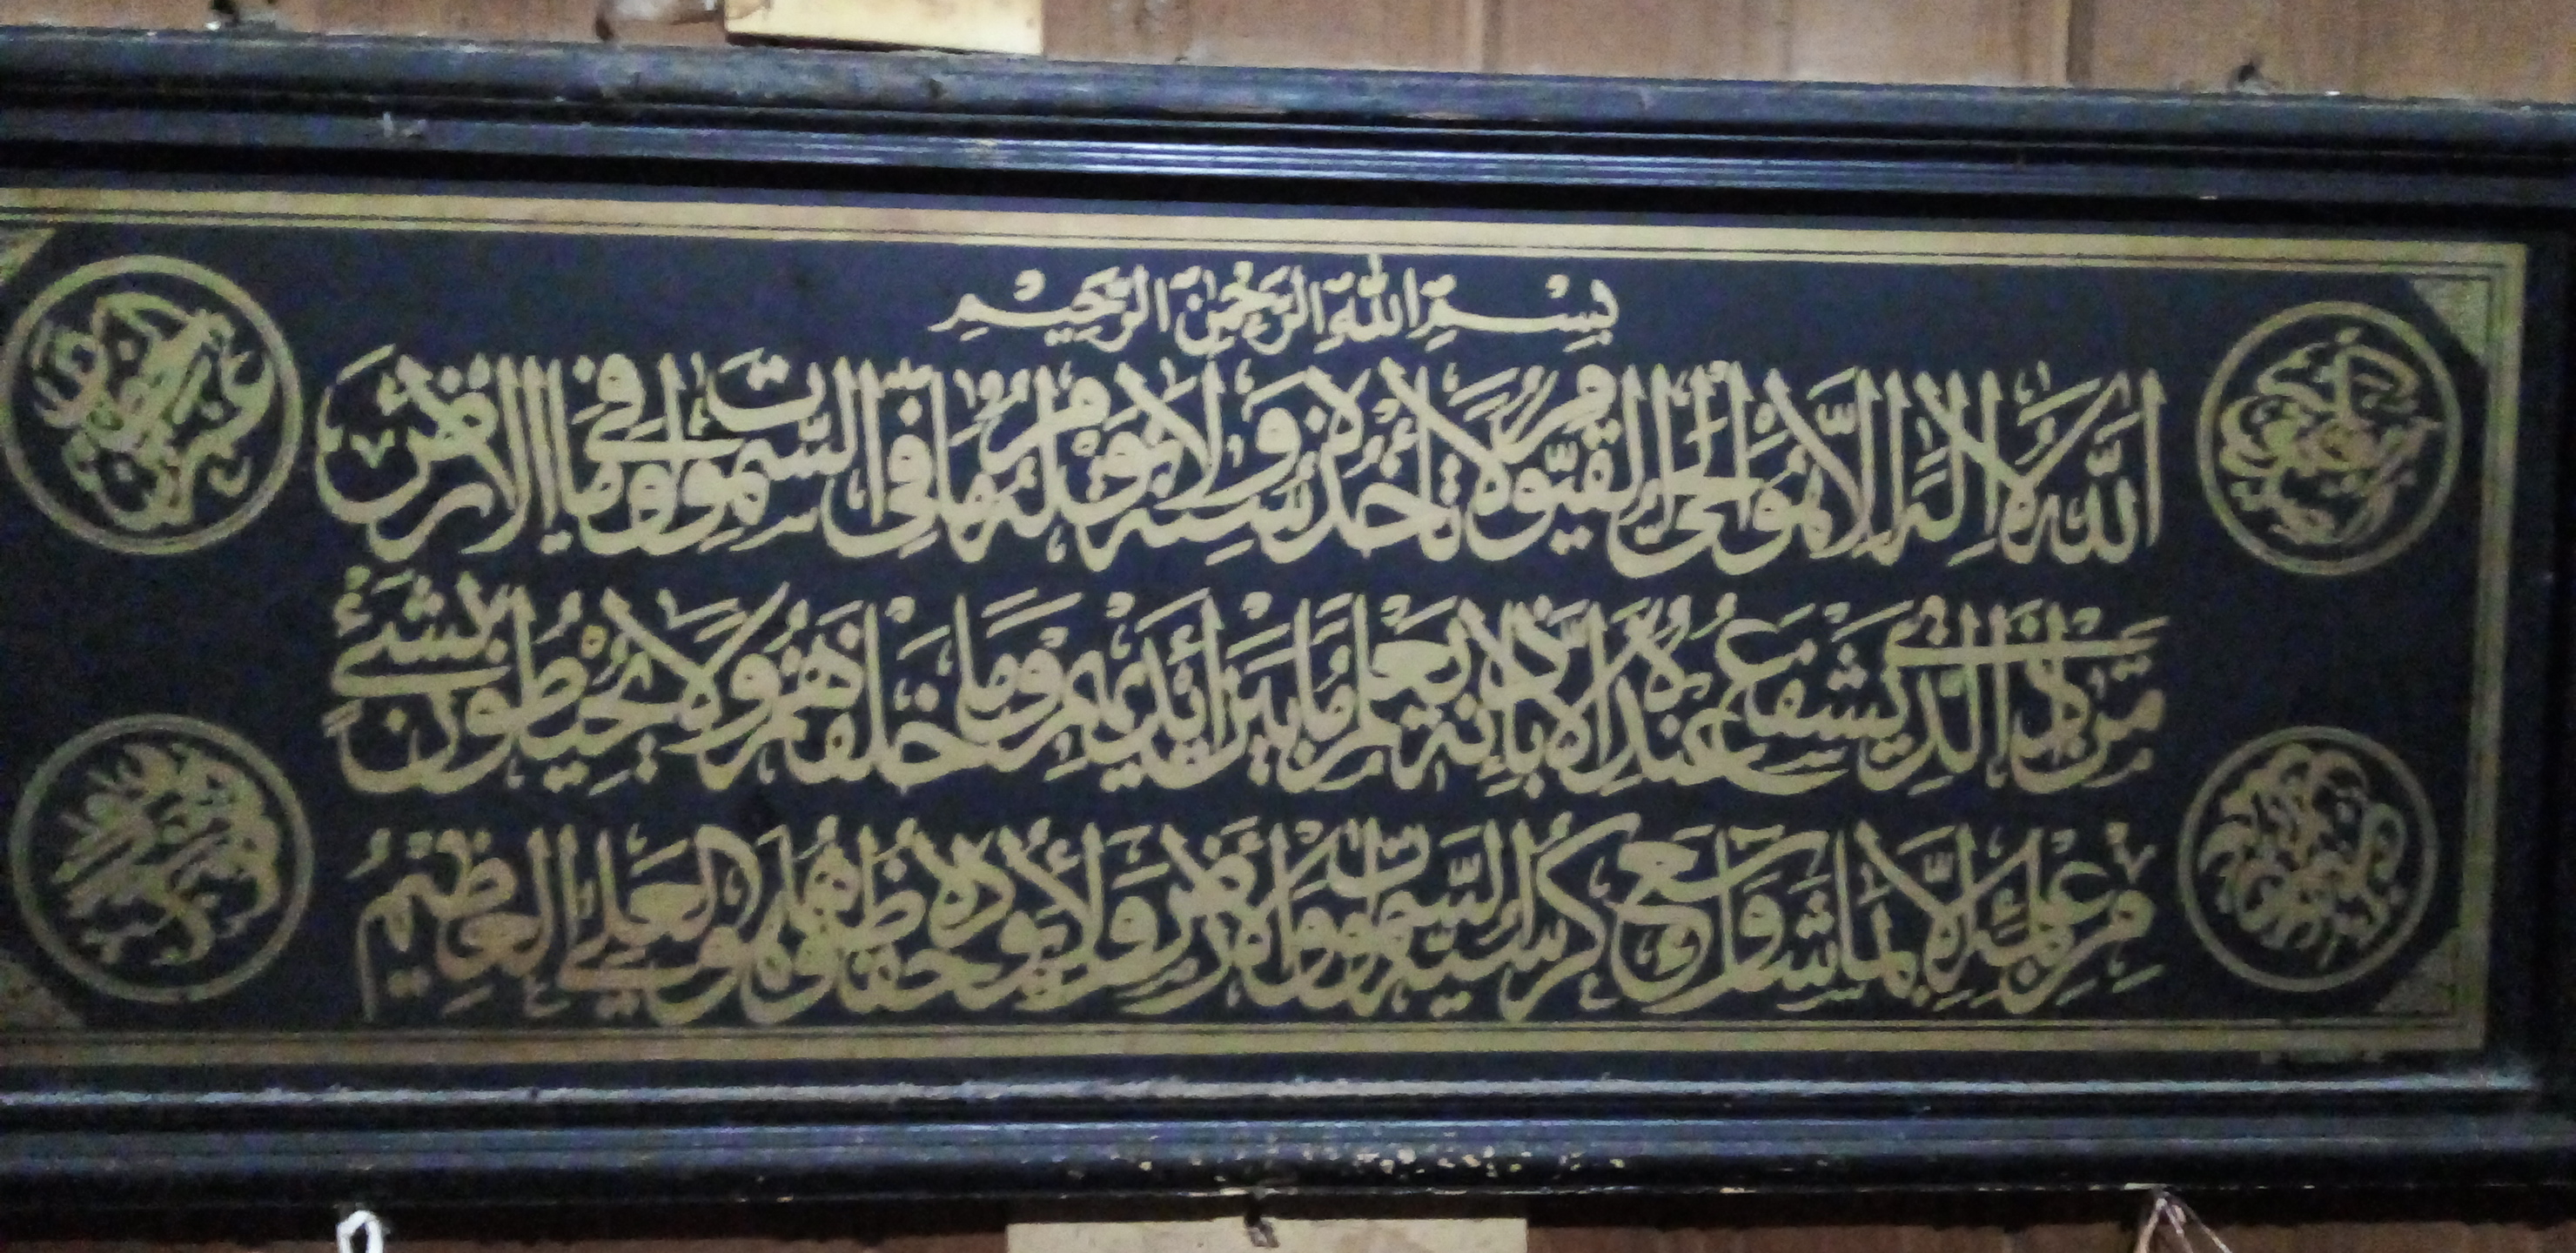 بِسْمِ اللهِ الرَّحْمٰنِ الرَّحِيْمِ
اَللّٰهُ لَا اِلٰهَ اِلَّا هُوَ الْحَيُّ الْقَيُّوْمُ لَا تَأْخُذُهُ سِنَةٌ وَلَا نَوْمٌ لَهُ مَا فِى السَّمٰوَاتِ وَمَا فِى الْاَرْضِ
مَنْ ذَا الَّذِيْ يَشْفَعُ عِنْدَهُ اِلَّا بِاِذْنِهِ يَعْلَمُ مَا بَيْنَ اَيْدِيْهِمْ وَمَا خَلْفَهُمْ وَلَا يُحِيْطُوْنَ بِشَيْءٍ
مِنْ عِلْمِهِ اِلَّا بِمَا شَاءَ وَسِعَ كُرْسِيُّهُ السَّمٰوَاتِ وَالْاَرْضَ وَلَا يَؤُدُهُ حِفْظُهُمَا وَهُوَ الْعَلِيُّ الْعَظِيْمُ